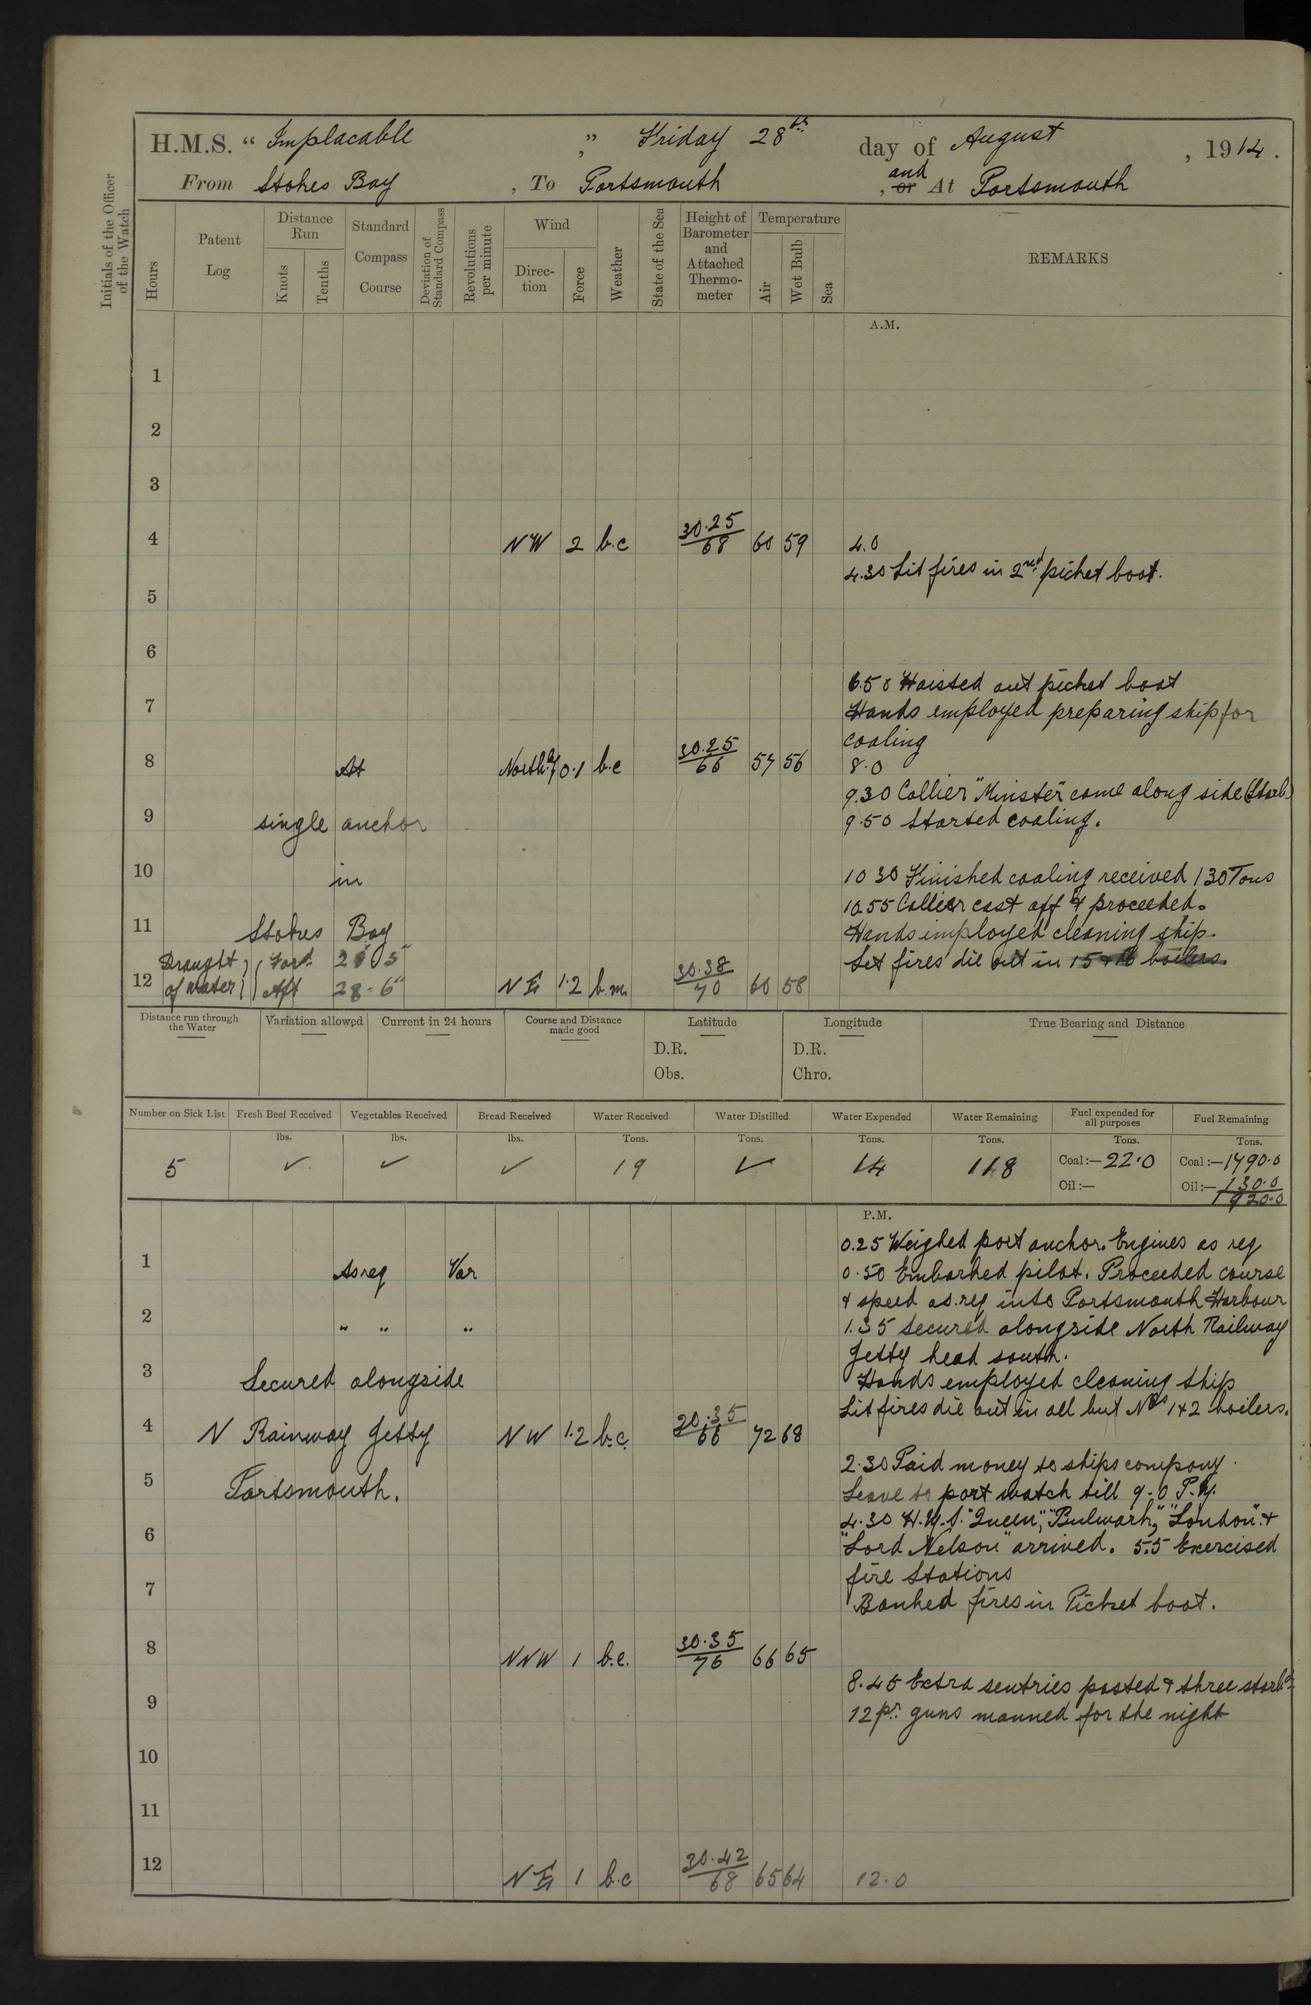 H.M.S. “ Implacable ,” Friday 28th day of August , 1914.
From Stokes Bay , To Portsmouth , or and At Portsmouth
Initials of the Officer of the Watch
Hours
Patent Log
Distance Run
Knots
Tenths
Standard Compass Course
Deviation of Standard Compass
Revolutions per minute
Wind
Direction
Force
Weather
State of the Sea
Height of Barometer and Attached Thermometer
Temperature
Air
Wet Bulb
Sea
REMARKS
A.M.
1
2
3
4 NW 2 b.c 30.25/68 60 59 4.0
4.30 Lit fires in 2nd picket boat.
5
6
6.50 Hoisted out picket boat
7 Hands employed preparing ship for
coaling
8 At North'y 0.1 b.c 30.25/66 57 56 8.0
9.30 Collier "Minister" came along side (Starb)
9 single anchor 9.50 Started coaling.
10 in 10 30 Finished coaling received 130 Tons
10.55 Collier cast off & proceeded.
11 Stokes Bay Hands employed cleaning ship.
Draught of water Ford
Let fires die out in 15 & 16 boilers.
12 Aft 28-6" NE 1.2 b.m. 30.38/70 60 58
Distance run through the Water
Variation allowed
Current in 24 hours
Course and Distance made good
Latitude
D.R.
Obs.
Longitude
D.R.
Chro.
True Bearing and Distance
Number on Sick List Fresh Beef Received Vegetables Received Bread Received Water Received Water Distilled Water Expended Water Remaining Fuel expended for all purposes Fuel Remaining
lbs. lbs. lbs. Tons. Tons. Tons. Tons. Tons. Tons.
5 ✓ ✓ ✓ 19 ✓ 14 118 Coal:—22.0 Coal:—1790.0
Oil:— Oil:— 130.0
1920.0
P.M.
0.25 Weighed port anchor. Engines as req
1 As req Var 0.50 Embarked pilot. Proceeded course
& speed as req into Portsmouth Harbour
2 " " " 1.35 Secured alongside North Railway
Jetty head south.
3 Secured alongside Hands employed cleaning ship
Let fires die out in all but Nos 1 & 2 boilers.
4 N Rainway Jetty NW 1.2 b.c. 30.35/66 72 68
2.30 Paid money to ships company.
5 Portsmouth. Leave to port watch till 9-0 P.M.
4.30 H.M.S. "Queen", "Bulwark", "London" &
6 "Lord Nelson" arrived. 5.5 Exercised
fire Stations
7 Banked fires in Picket boat.
8 NNW 1 b.c. 30.35/76 66 65
8.45 Extra sentries posted & three starbd
9 12 pr. guns manned for the night
10
11
12 NE 1 b.c 30.42/68 65 64 12.0